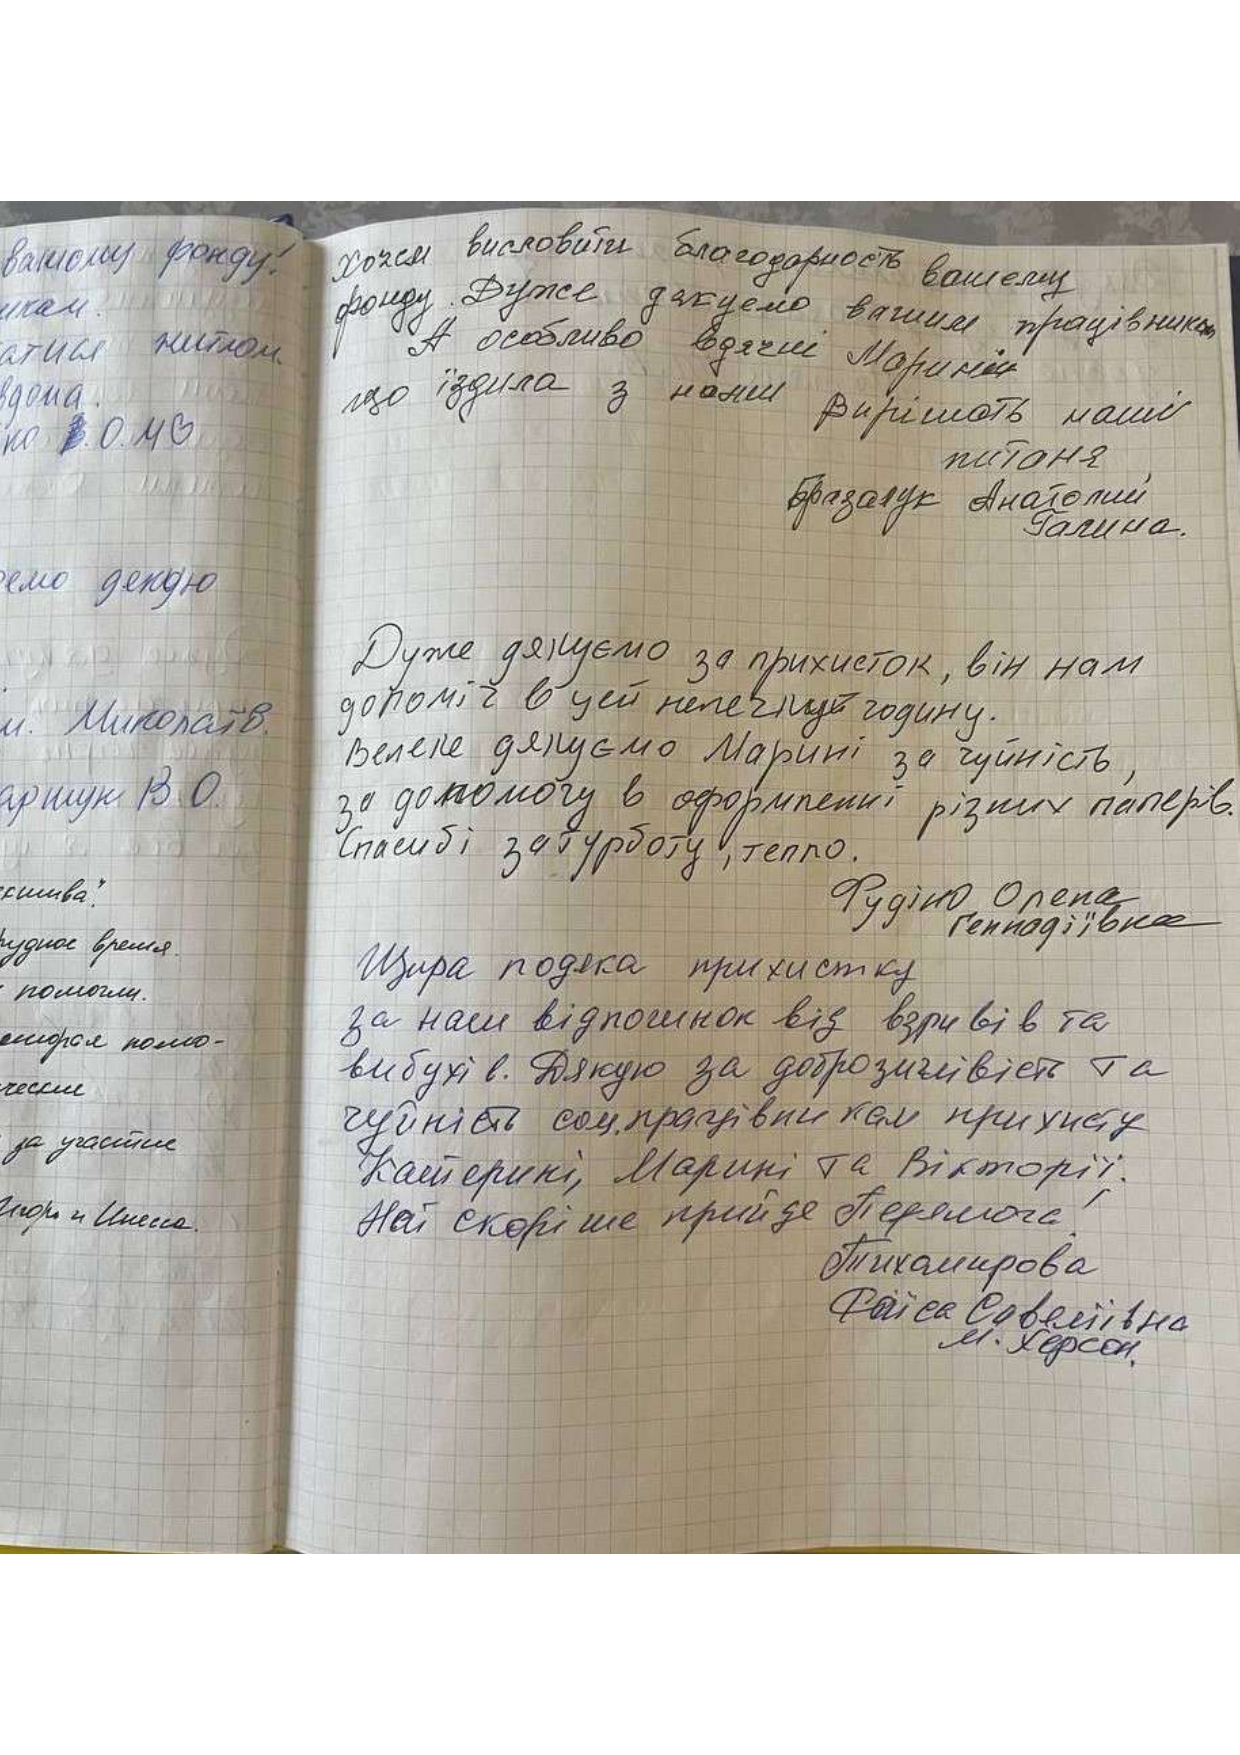 вашому фонду!
житлом.
вдома.
В.О. МВ
демо декдю
м. Миколаїв.
В.О.
рудное время.
помогли.
помо-
за участие
Игорь и Инесса.
Хочем висловити благодарность вашему
фонду. Дуже дякуемо вашим працівникам
А особливо вдячні Марині
що їздила з нами Вирішать наші
питаня
Бразалук Анатолий
Галина.
Дуже дякуємо за прихисток, він нам
допоміг в цей нелегкий годину.
Велеке дякуємо Марині за чуйність,
за допомогу в оформленні різних паперів.
Спасибі за турботу, тепло.
Фудіно Олена
Геннадіївна
Щира подяка прихистку
за наш відпочинок від взривів та
вибухів. Дякую за доброзичлівість та
чуйність соц.працівникам прихисту
Катерині, Марині та Вікторії.
Най скоріше прийде Перемога!
Тихомирова
Раїса Савеліївна
м. Херсон.